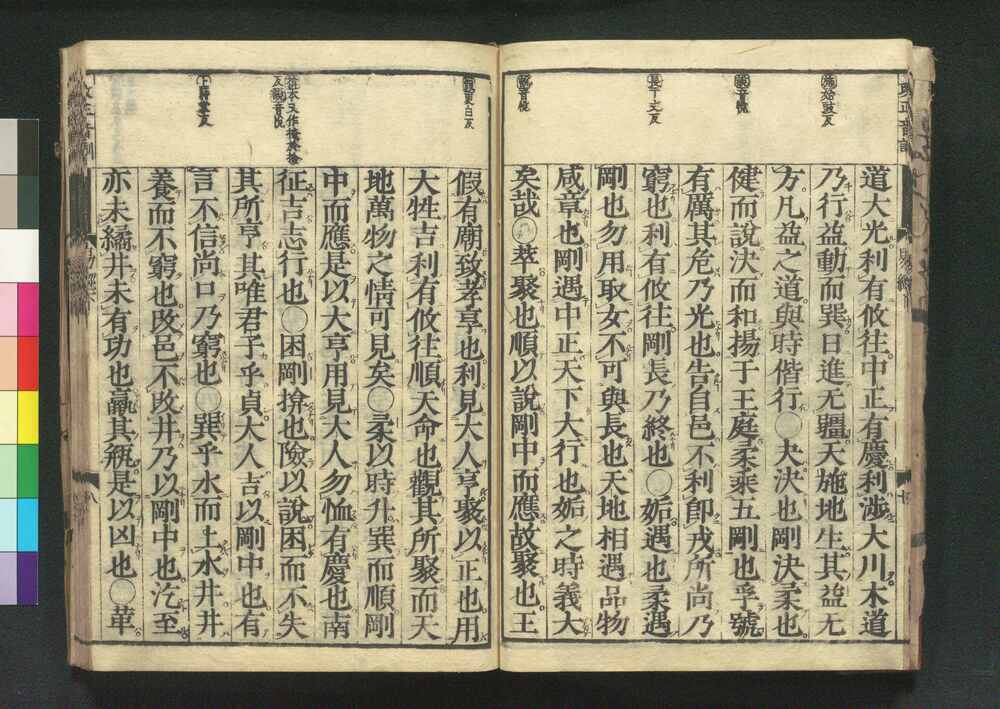 道大光利有攸往中正有慶利涉大川木道
乃行益動而巽日進无疆天施地生其益无
方凡益之道與時偕行○夬決也剛決柔也
健而說決而和揚于王庭柔乘五剛也孚號
有厲其危乃光也告自邑不利卽戎所尚乃
窮也利有攸往剛長乃終也○姤遇也柔遇
剛也勿用取女不可與長也天地相遇品物
咸章也剛遇中正天下大行也姤之時義大
矣哉○萃聚也順以說剛中而應故聚也王
假有廟致孝享也利見大人亨聚以正也用
大牲吉利有攸往順天命也觀其所聚而天
地萬物之情可見矣○柔以時升巽而順剛
中而應是以大亨用見大人勿恤有慶也南
征吉志行也○困剛揜也險以說困而不失
其所亨其唯君子乎貞大人吉以剛中也有
言不信尚口乃窮也○巽乎水而上水井井
養而不窮也改邑不改井乃以剛中也汔至
亦未繘井未有功也羸其瓶是以凶也○革
施始豉反
說音悅
長丁丈反
說音悅
假更白反
揜本又作掩於檢
反說音悅
上時掌反
易經
八